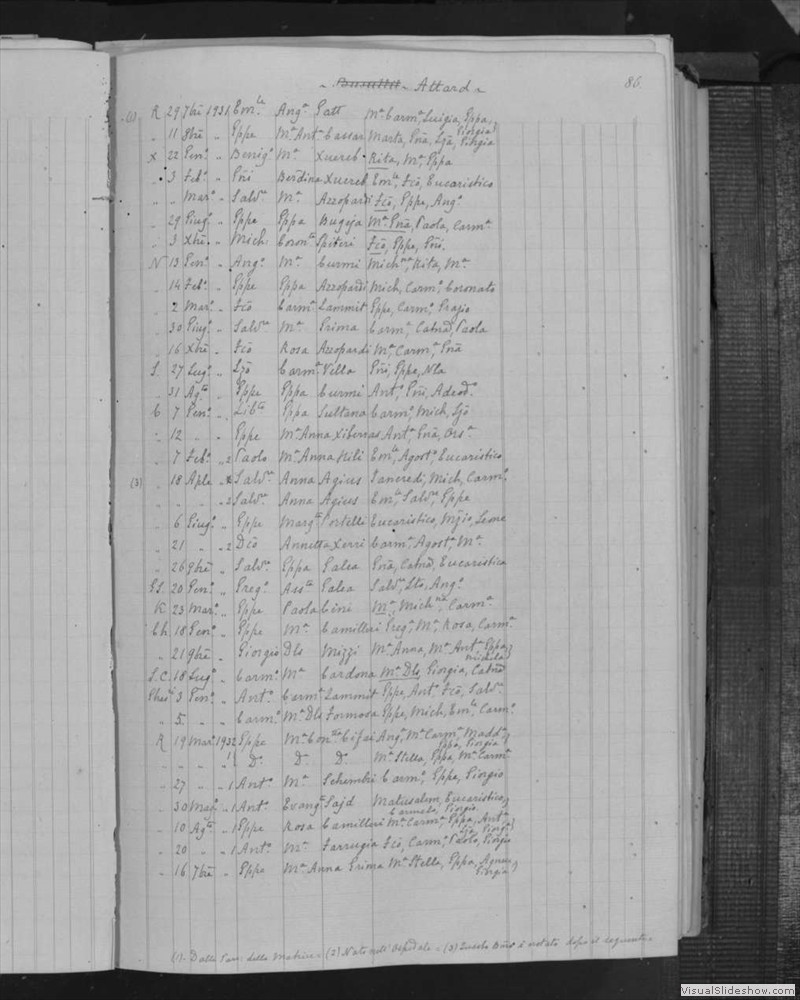 ~ Busuttil ~ Attard ~ 86
(1) R 29 7bre 1931 Em.le Ang.a Gatt Ma Carm.a Luigia, Eppa, Giorgia
" 11 8bre " Eppe Ma Ant.a Cassar Marta, Pña, Ljã, Giorgia
X 22 Gen.o " Benig.o Ma Xuereb Rita, Ma, Eppa
" 3 Feb.o " Pñi Berdina Xuereb Em.le, Fcõ, Eucaristico
" " Mar.o " Salv.re Ma Azzopardi Fcõ, Eppe, Ang.o
" 29 Giug.o " Eppe Eppa Bugeja Ma Pña, Paola, Carm.a
" 3 Xbre " Mich. Coron.ta Spiteri Fcõ, Eppe, Pñi
N 13 Gen.o " Ang.o Ma Curmi Mich.na, Rita, Ma
" 14 Feb.o " Eppe Eppa Azzopardi Mich, Carm.o Coronato
" 2 Mar.o " Fcõ Carm.a Sammut Eppe, Carm.o
" 30 Giug.o " Salv.re Ma Prima Carm.a, Catnã, Paola
" 16 Xbre " Fcõ Rosa Azzopardi Ma, Carm.a Pña
S. 27 Lug.o " Ljõ Carm.a Vella Pñi, Eppe, Nla
" 31 Ag.to " Eppe Eppa Curmi Ant.o Pñi, Adeod.o
C 7 Gen.o " Lib.to Eppa Sultana Carm.o Mich, Ljõ
" 12 " " Eppe Ma Anna Xiberras Ant.a Pña, Ors.a
" 7 Feb.o " 2 Paolo Ma Anna Mili Em.le, Agost.o Eucaristico
(3) " 18 Aple " 2 Salv.re Anna Agius Tancredi, Mich, Carm.o
" " " " 2 Salv.re Anna Agius Em.le Salv.re Eppe
" 6 Giug.o " Eppe Marg.ta Portelli Eucaristico, Leone
" 21 " " 2 Dcõ Annetta Xerri Carm.a, Agost.a Ma
" 26 9bre " Salv.re Eppa Galea Pña, Catnã, Eucaristica
20 Gen.o " Greg.o Ass.ta Galea Salv.re, Ang.o
K 23 Mar.o " Eppe Paola Cini Ma, Mich.na, Carm.a
Ch 18 Gen.o " Eppe Ma Camilleri Greg.a Ma, Rosa, Carm.a
" 21 9bre " Giorgio Dls Mizzi Ma Anna, Ma Ant.a Eppa, Michela
S.C. 18 Lug.o " Carm.o Ma Cardona Ma Dls, Giorgia, Catnã
3 Gen.o " Ant.o Carm.a Sammut Eppe, Ant.o Fcõ, Salv.re
" 5 " " Carm.o Ma Dls Formosa Eppe, Mich, Em.le, Carm.o
R 19 Mar.o 1932 Eppe Ma Con.ta Cifai Ang.a, Ma Carm.a, Madd.a Eppa, Giorgia
" " " " 1 D.o D.o D.o Ma Stella, Eppa, Ma Carm.a
" 27 " " 1 Ant.o Ma Schembri Carm.o Eppe, Giorgio
" 30 Mag.o " 1 Ant.o Evang.ta Sajd Matusalem, Eucaristico, Carmelo, Giorgio
" 10 Ag.to " 1 Eppe Rosa Camilleri Ma Carm.a Eppa, Ant.a Giorgia
" 20 " " 1 Ant.o Ma Farrugia Fcõ, Carm.o Paolo, Giorgio
" 16 7bre " Eppe Ma Anna Grima Ma Stella, Eppa, Agnese, Giorgia
(1) - Dalla Parr. della Matrice - (2) Nato nell' Ospedale - (3) Questo Bño è notato dopo il seguente -
VisualSlideshow.com